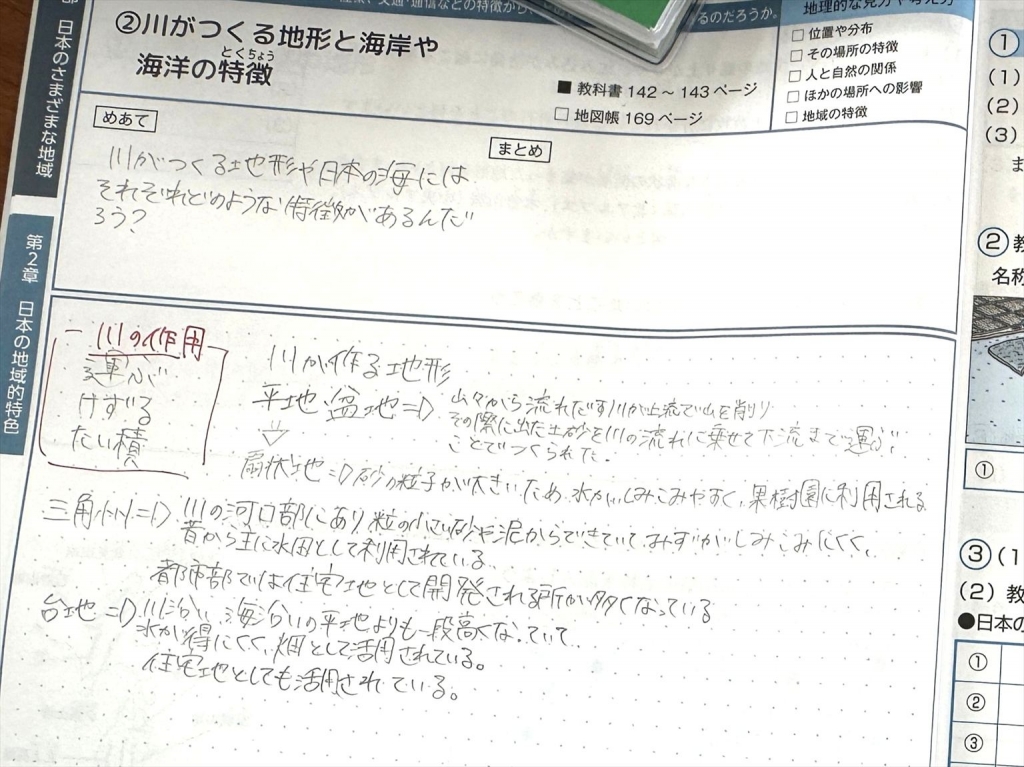 日本のさまざまな地域
第2章 日本の地域的特色
②川がつくる地形と海岸や
とくちょう
海洋の特徴
るのだろうか。
■ 教科書 142 ~ 143 ページ
□ 地図帳 169 ページ
□ 位置や分布
□ その場所の特徴
□ 人と自然の関係
□ ほかの場所への影響
□ 地域の特徴
めあて
川がつくる地形や日本の海には
それぞれどのような特徴があるんだ
ろう?
まとめ
川の作用
運ぶ
けずる
たい積
川が作る地形
平地、盆地⇒ 山々から流れだす川が上流で山を削り
その際に出た土砂を川の流れに乗せて下流まで運ぶ
ことでつくられた.
扇状地⇒砂の粒子が大きいため、水がしみこみやすく、果樹園に利用される
三角州⇒川の河口部にあり、粒の小さい砂や泥からできていて、みずがしみこみにくく、
昔から主に水田として利用されている.
都市部では住宅地として開発される所が多くなっている
台地⇒川沿い、海沿いの平地よりも一段高くなっていて
水が得にくく、畑として活用されている。
住宅地としても活用されている。
①
(1)
(2)
(3)
②教
名称
①
③(1
(2) 教
●日本の
①
②
③